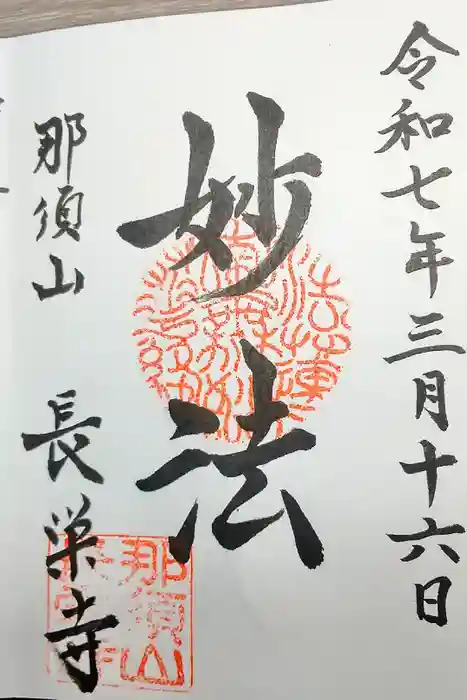 令和七年三月十六日
妙法
那須山 長栄寺
那須山